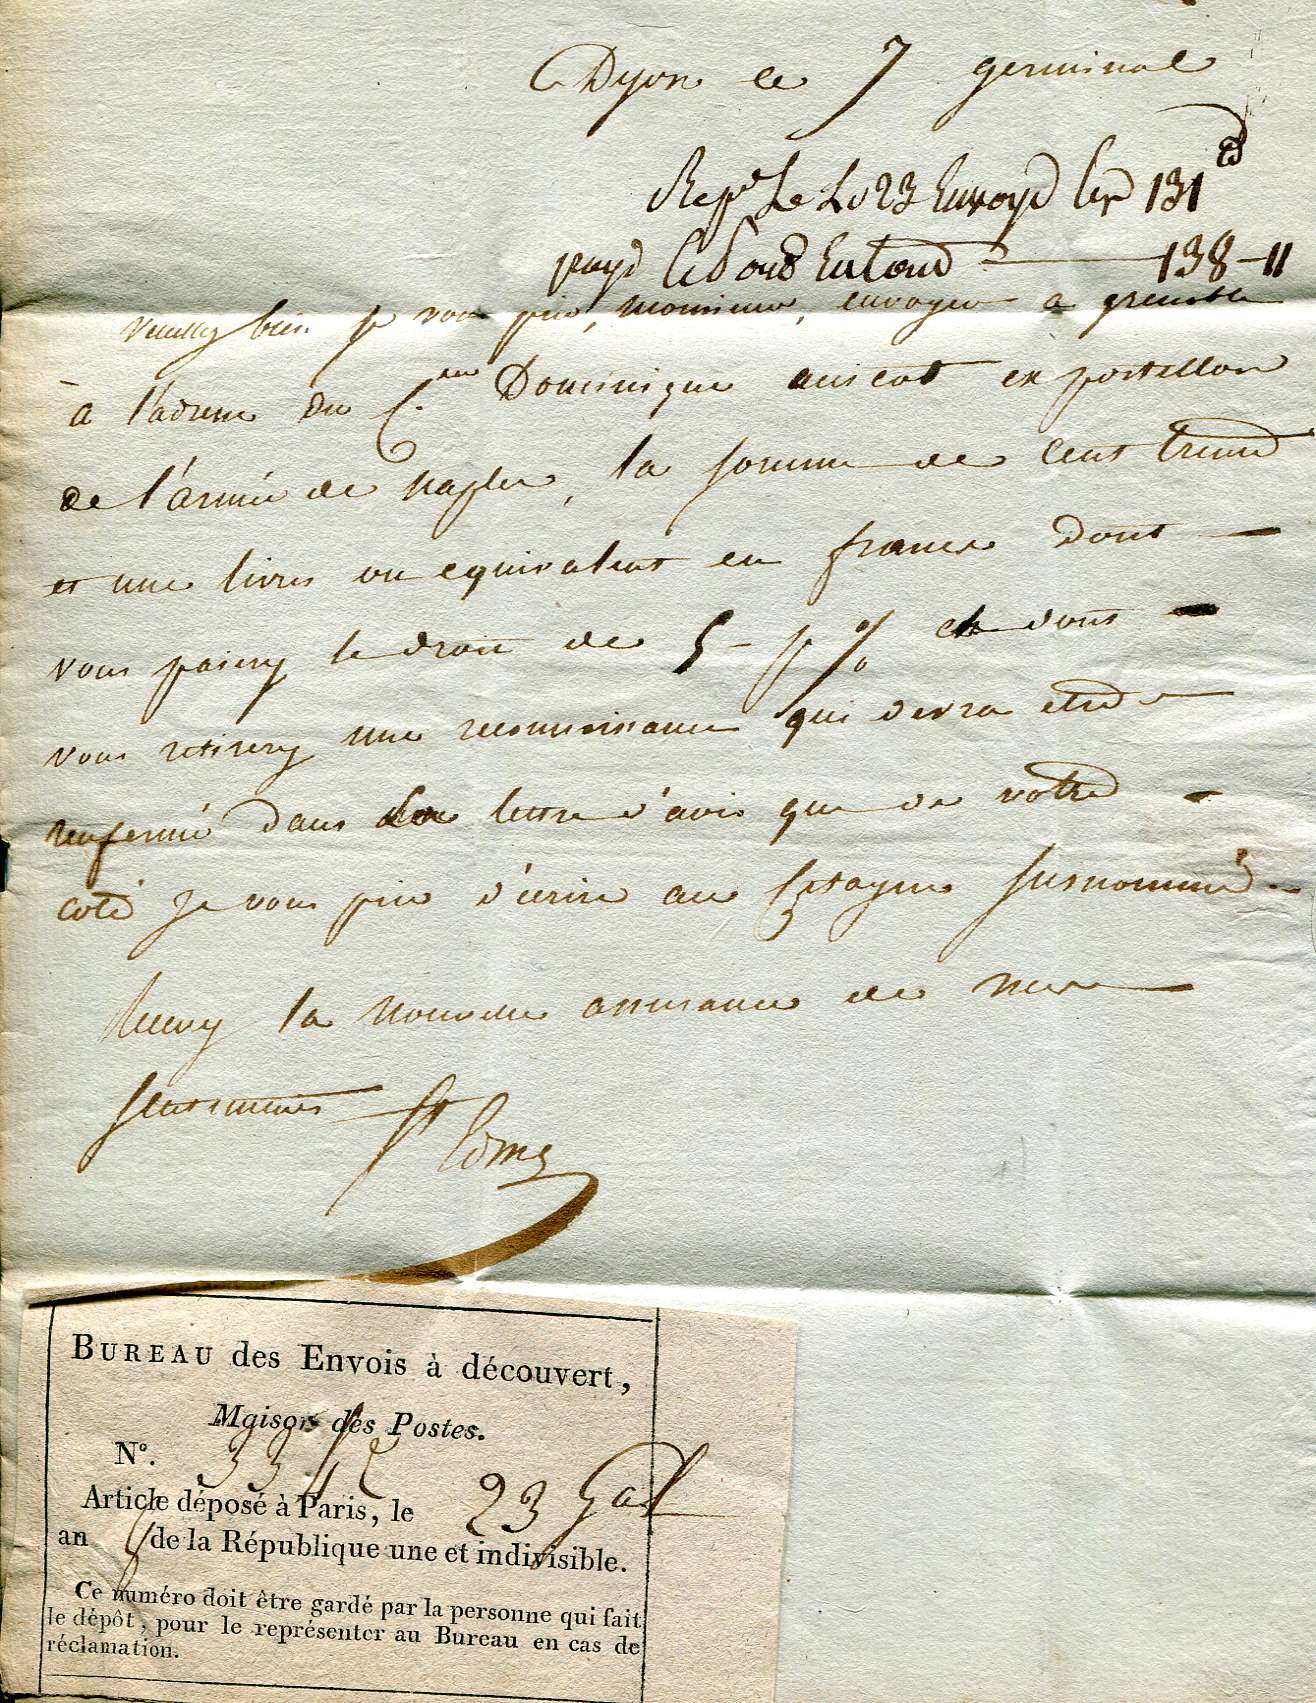 Dijon le 7 germinal
Repdu Le 23 Envoyé les 131
payé le port En tout 138-11
veuillez bien je vous prie, monsieur, envoyer a grenoble
à l'adresse du C.en Dominique ex postillon
de l'armée de naples, la somme de cent trente
et une livres ou equivalent en francs dont
vous paierez le droit de 5 p % et dont
vous retirerez une reconnoissance qui devra etre
renfermé dans la lettre d'avis que de votre
coté je vous prie d'ecrire au Citoyen susnommé
Recevez la nouvelle assurance de mes
sentimens
BUREAU des Envois à découvert,
Maison des Postes.
N°. 33
Article déposé à Paris, le 23 Gal
an de la République une et indivisible.
Ce numéro doit être gardé par la personne qui fait
le dépôt, pour le représenter au Bureau en cas de
réclamation.